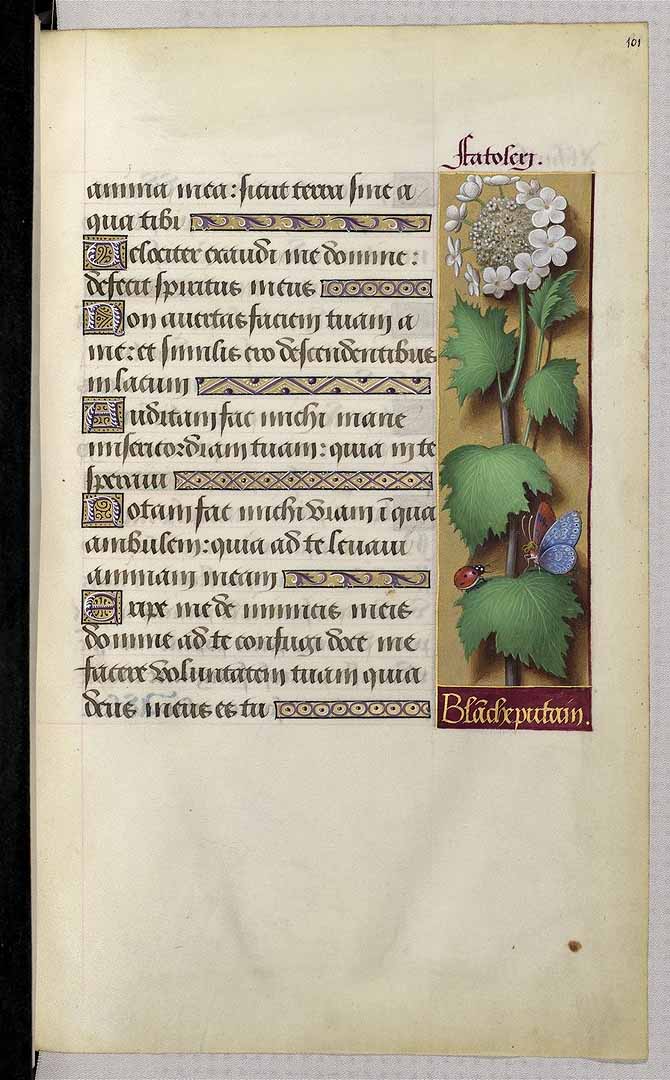 101
Statoseri.
anima mea: sicut terra sine a
qua tibi
Velociter exaudi me domine:
defecit spiritus meus
Non avertas faciem tuam a
me: et similis ero descendentibus
in lacum
Auditam fac michi mane
misericordiam tuam: quia in te
speravi
Notam fac michi viam ī qua
ambulem: quia ad te levavi
animam meam
Eripe me de inimicis meis
domine ad te confugi doce me
facere voluntatem tuam quia
deus meus es tu
Blācheputain.